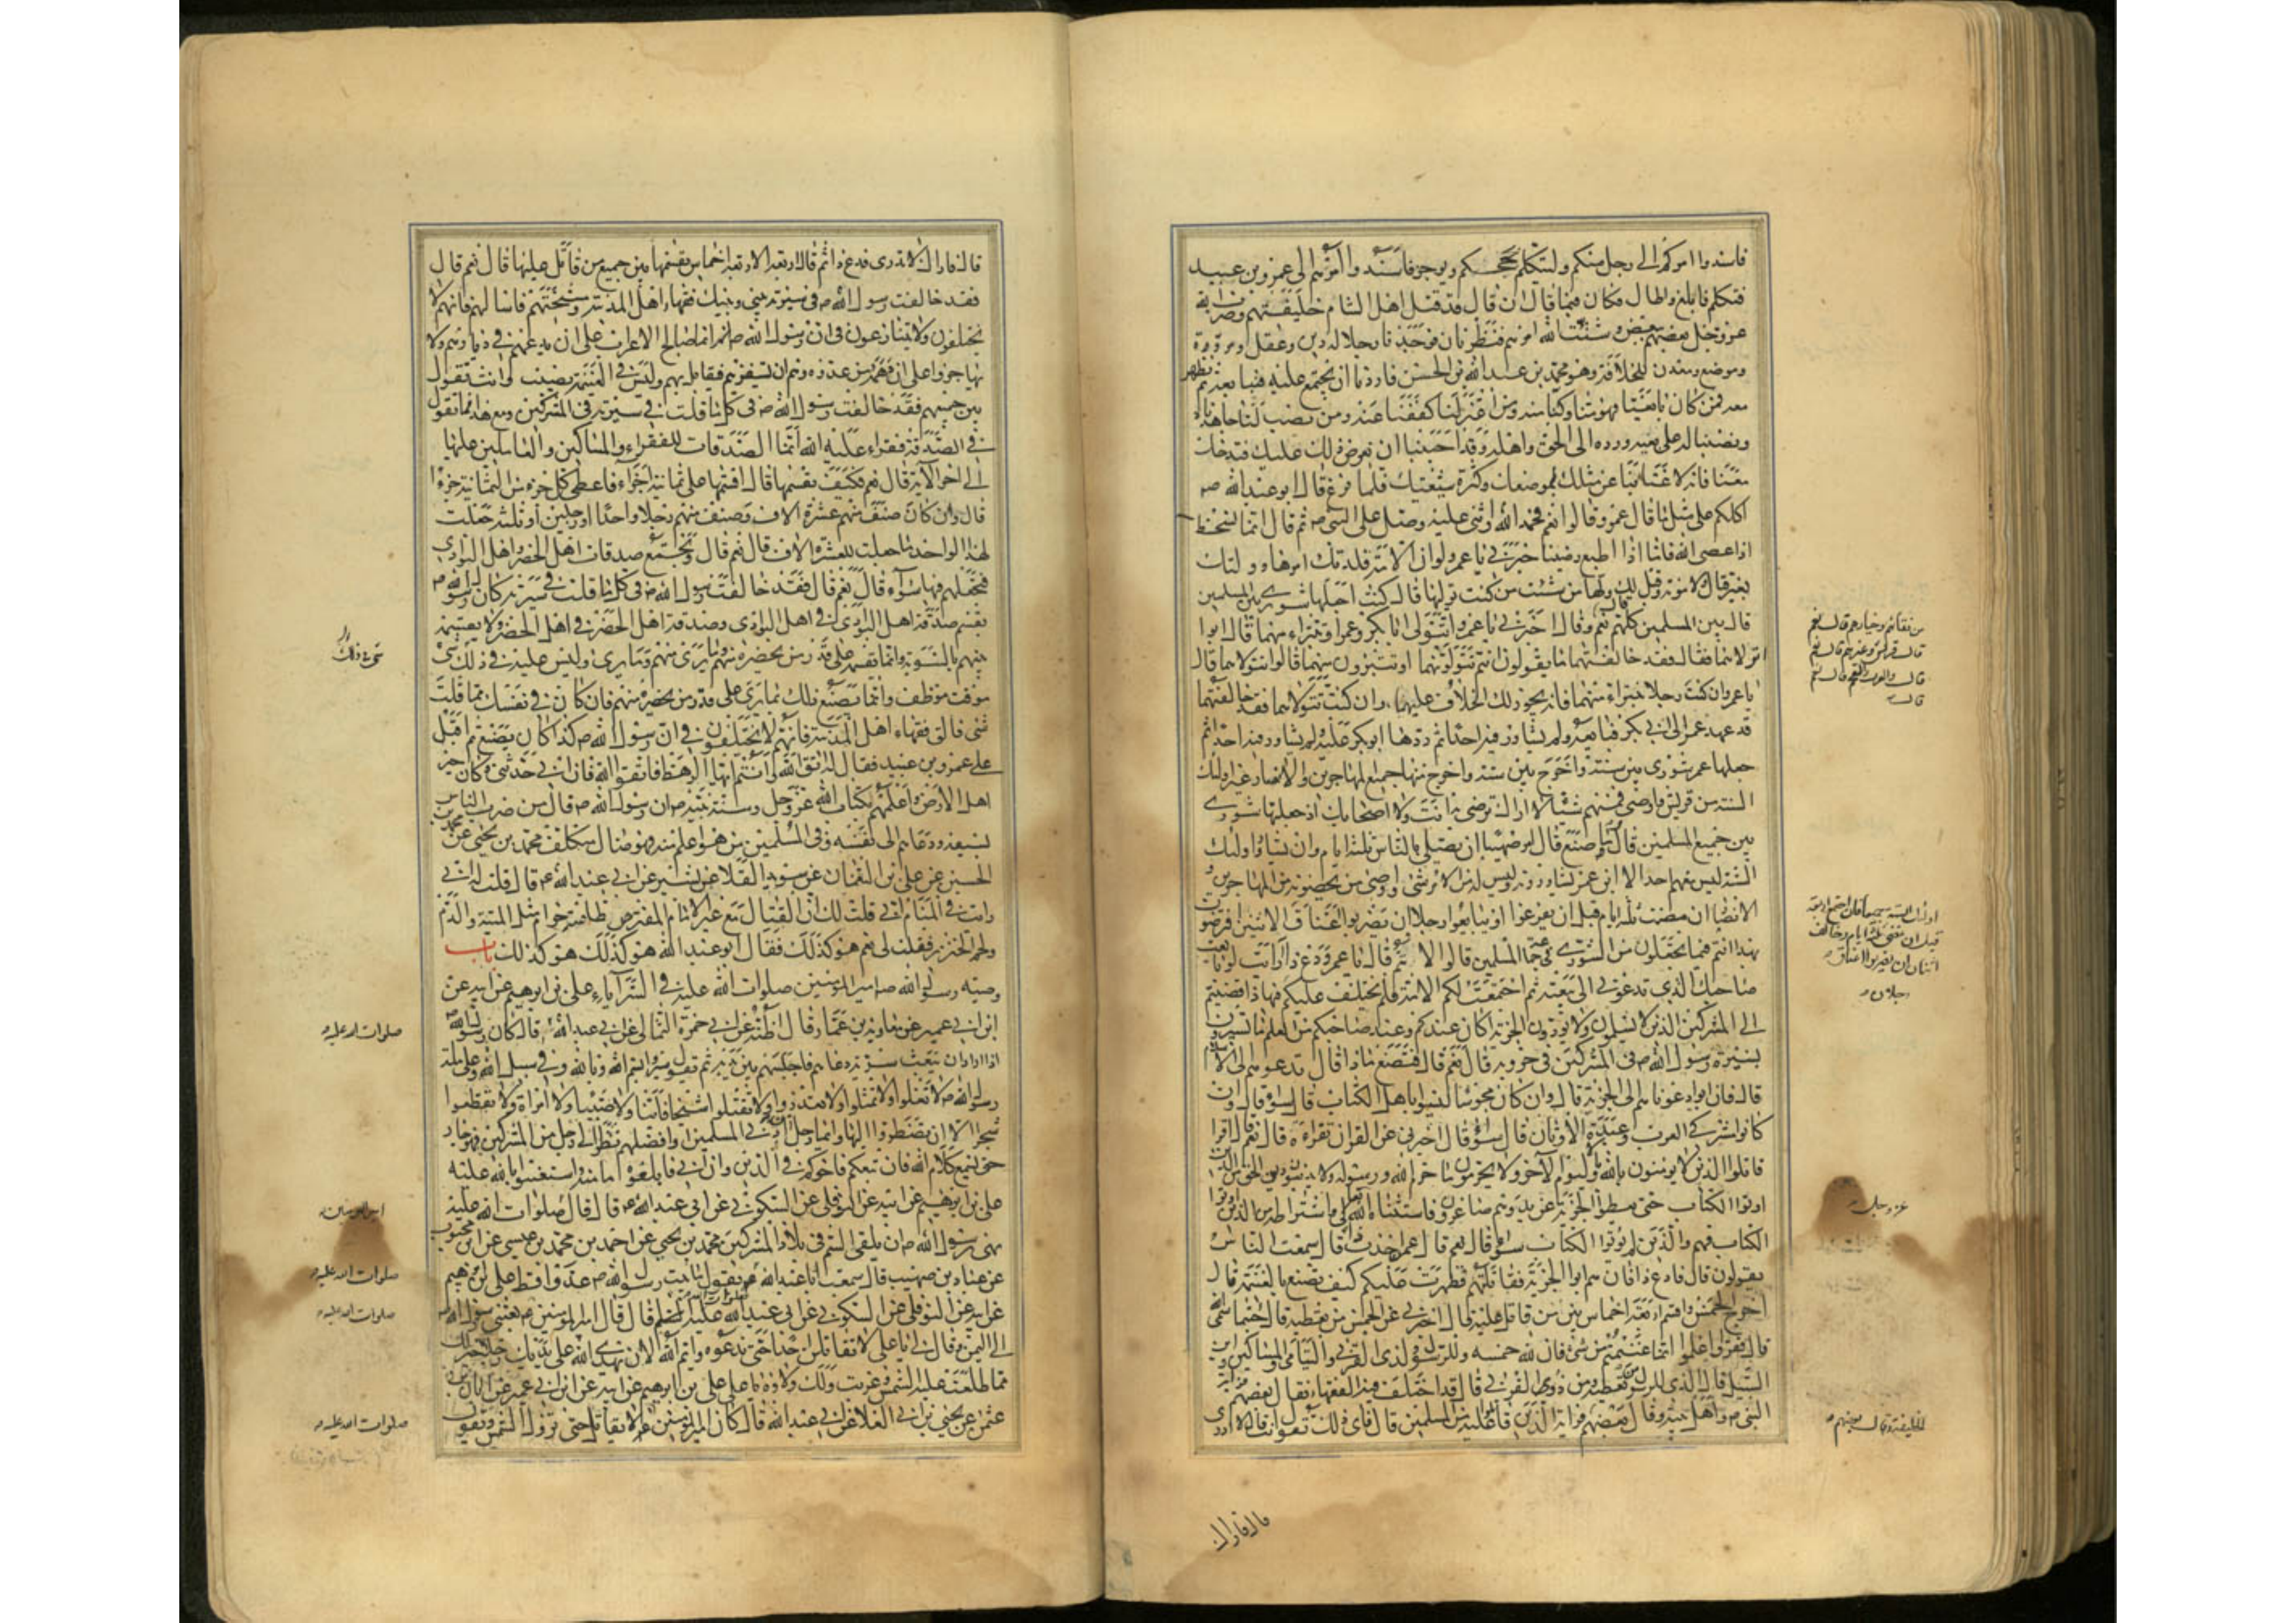 فاسندوا امركم الى رجل منكم وليتكلم بحججكم ويوجز فاسندوا امرهم الى عمرو بن عبيد
فتكلم فابلغ واطال فكان فيما قال ان قال قد قتل اهل الشام خليفتهم وضرب الله
عز وجل بعضهم ببعض وشتت الله امرهم فنظرنا فوجدنا رجلا له دين وعقل ومروة
وموضع ومعدن للخلافة وهو محمد بن عبد الله بن الحسن فاردنا ان نجتمع عليه فنبايعه ثم نظهر
معه فمن كان بايعنا فهو منا وكنا منه ومن اعتزلنا كففنا عنه ومن نصب لنا جاهدناه
ونصبنا له على بغيه ورده الى الحق واهله وقد احببنا ان نعرض ذلك عليك فتدخل
معنا فانه لا غنا بنا عن مثلك لموضعك وكثرة شيعتك فلما فرغ قال ابو عبد الله ص
اكلكم على مثل ما قال عمرو قالوا نعم فحمد الله واثنى عليه وصلى على النبي ص ثم قال انما نسخط
اذا عصي الله فاما اذا اطيع رضينا خبرني يا عمرو لو ان الامة قلدتك امرها وولتك
بغير قتال ولا مؤنة وقيل لك ولها من شئت من كنت توليها قال كنت اجعلها شورى بين المسلمين
قال بين المسلمين كلهم قال نعم وقال اخبرني يا عمرو اتتولى ابا بكر وعمر او تتبراء منهما قال
اتولاهما فقال فقد خالفتهما ما تقولون انتم تتولونهما او تتبرون منهما قالوا نتولاهما قال
يا عمرو ان كنت رجلا تتبراء منهما فانه يجوز ذلك الخلاف عليهما وان كنت تتولاهما فقد خالفتهما
قد عهد عمر الى ابي بكر فبايعه ولم يشاور فيه احدا ثم ردها ابو بكر عليه ولم يشاور فيه احدا ثم
جعلها عمر شورى بين ستة واخرج منها جميع المهاجرين والانصار غير اولئك
الستة من قريش واوصى فيهم شيئا لا اراك ترضى به انت ولا اصحابك اذ جعلتها شورى
بين جميع المسلمين قال وما صنع قال امر صهيبا ان يصلى بالناس ثلثة ايام وان يشاور اولئك
الستة ليس معهم احد الا ابن عمر يشاورونه وليس له من الامر شئ واوصى من بحضرته من المهاجرين و
الانصار ان مضت ثلثة ايام قبل ان يفرغوا او يبايعوا رجلا ان تضربوا اعناق الاثنين افترضون
بهذا انتم فيما تجعلون من الشورى في جماعة المسلمين قالوا لا ثم قال يا عمرو دع ذا ارايت لو بايعت
صاحبك الذي تدعوني الى بيعته ثم اجتمعت لكم الامة فلم يختلف عليكم فيها فافضيتم
الى المشركين الذين لا يسلمون ولا يؤدون الجزية اكان عندكم وعند صاحبكم من العلم ما تسيرون
بسيرة رسول الله ص في المشركين في حروبه قال نعم قال فتصنع ماذا قال ندعوهم الى الاسلام
قال فان ابوا دعوناهم الى الجزية قال وان كان مجوسا ليسوا باهل الكتاب قال سواء قال وان
كانوا مشركي العرب وعبدة الاوثان قال سواء قال اخبرني عن القران تقراءه قال نعم قال اقرا
قاتلوا الذين لا يؤمنون بالله ولا باليوم الاخر ولا يحرمون ما حرم الله ورسوله ولا يدينون دين الحق من الذين
اوتوا الكتاب حتى يعطوا الجزية عن يد وهم صاغرون فاستثناء الله تعالى واشتراطه من الذين اوتوا
الكتاب فهم والذين لم يؤتوا الكتاب سواء قال نعم قال عمن اخذت ذا قال سمعت الناس
يقولون قال فدع ذا فان هم ابوا الجزية فقاتلتهم فظهرت عليهم كيف تصنع بالغنيمة قال
اخرج الخمس واقسم اربعة اخماس بين من قاتل عليه قال اخبرني عن الخمس من تعطيه قال حيثما سمى الله
قال فقرا واعلموا انما غنمتم من شئ فان لله خمسه وللرسول ولذي القربى واليتامى والمساكين وابن
السبيل قال الذي للرسول من تعطيه ومن ذوي القربى قال قد اختلف فيه الفقهاء فقال بعضهم قرابة
النبي ص واهل بيته وقال بعضهم قرابة الذين قاتلوا عليه من المسلمين قال فاى ذلك تقول انت قال لا ادرى
من فقهائهم وخيارهم قال نعم
قال قريش وغيرهم قال نعم
قال والعرب والعجم قال نعم
قال
اولئك الستة جميعا فان اجتمع اربعة
قبل ان تمضي ثلثة ايام وخالف
اثنان ان يضربوا اعناق
رجلان
عز وجل
الخليفة وقال بعضهم
قال فاراك
قال فاراك لا تدرى فدع ذا ثم قال ارايت الاربعة اخماس تقسمها بين جميع من قاتل عليها قال نعم قال
فقد خالفت رسول الله ص في سيرته بيني وبينك فقهاء اهل المدينة ومشيختهم فاسالهم فانهم لا
يختلفون ولا يتنازعون في ان رسول الله ص انما صالح الاعراب على ان يدعهم في ديارهم ولا
يهاجروا على ان دهمه من عدوه دهم ان يستفزهم فيقاتل بهم وليس في الغنيمة نصيب وانت تقول
بين جميعهم فقد خالفت رسول الله ص في كل ما قلت في سيرته في المشركين ومع هذا ما تقول
في الصدقة فقراء عليه الاية انما الصدقات للفقراء والمساكين والعاملين عليها
الى اخر الاية قال نعم فكيف تقسمها قال اقسمها على ثمانية اجزاء فاعطي كل جزء من الثمانية جزءا
قال وان كان صنف منهم عشرة الاف وصنف منهم رجلا واحدا او رجلين او ثلثة جعلت
لهذا الواحد ما جعلت للعشرة الاف قال نعم قال وتجمع صدقات اهل الحضر واهل البوادي
فتجعلهم فيها سواء قال نعم قال فقد خالفت رسول الله ص في كل ما قلت في سيرته كان رسول الله ص
يقسم صدقة اهل البوادي في اهل البوادي وصدقة اهل الحضر في اهل الحضر ولا يقسمه
بينهم بالسوية وانما يقسمه على قدر من يحضره منهم وما يرى منهم وما يرى وليس عليه في ذلك شئ
موقت موظف وانما يصنع ذلك بما يرى على قدر من يحضره منهم فان كان في نفسك مما قلت
شئ فالق فقهاء اهل المدينة فانهم لا يختلفون في ان رسول الله ص كذا كان يصنع ثم اقبل
على عمرو بن عبيد فقال له اتق الله وانتم ايها الرهط فاتقوا الله فان ابي حدثني وكان خير
اهل الارض واعلمهم بكتاب الله عز وجل وسنة نبيه ص ان رسول الله ص قال من ضرب الناس
بسيفه ودعاهم الى نفسه وفي المسلمين من هو اعلم منه فهو ضال متكلف محمد بن يحيى عن محمد بن
الحسين عن علي بن النعمان عن سويد القلا عن بشير عن ابي عبد الله ع قال قلت له اني
رايت في المنام اني قلت لك ان القتال مع غير الامام المفترض طاعته حرام مثل الميتة والدم
ولحم الخنزير فقلت لي نعم هو كذلك فقال ابو عبد الله هو كذلك هو كذلك باب
وصية رسول الله ص امير المؤمنين صلوات الله عليه في السرايا علي بن ابرهيم عن ابيه عن
ابن ابي عمير عن معاوية بن عمار قال اظنه عن ابي حمزة الثمالي عن ابي عبد الله قال كان رسول الله ص
اذا اراد ان يبعث سرية دعاهم فاجلسهم بين يديه ثم يقول سيروا بسم الله وبالله وفي سبيل الله وعلى ملة
رسول الله ص لا تغلوا ولا تمثلوا ولا تغدروا ولا تقتلوا شيخا فانيا ولا صبيا ولا امراة ولا تقطعوا
شجرا الا ان تضطروا اليها وايما رجل من ادنى المسلمين او افضلهم نظر الى رجل من المشركين فهو جار
حتى يسمع كلام الله فان تبعكم فاخوكم في الدين وان ابى فابلغوه مامنه واستعينوا بالله عليه
علي بن ابرهيم عن ابيه عن النوفلي عن السكوني عن ابي عبد الله ع قال قال صلوات الله عليه
نهى رسول الله ص ان يلقى السم في بلاد المشركين محمد بن يحيى عن احمد بن محمد بن عيسى عن ابن محبوب
عن عباد بن صهيب قال سمعت ابا عبد الله ع يقول ما بيت رسول الله ص عدوا قط علي بن ابرهيم
عن ابيه عن النوفلي عن السكوني عن ابي عبد الله عليه السلم قال قال امير المؤمنين ع بعثني رسول الله
الى اليمن وقال لي يا علي لا تقاتلن احدا حتى تدعوه وايم الله لان يهدي الله على يديك رجلا خير لك
مما طلعت عليه الشمس وغربت ولك ولاؤه يا علي علي بن ابرهيم عن ابيه عن ابن ابي عمير عن ابان بن
عثمن عن يحيى بن ابي العلا عن ابي عبد الله قال كان امير المؤمنين ع لا يقاتل حتى تزول الشمس ويقول
صلوات الله عليه
امير المؤمنين
صلوات الله عليه
صلوات الله عليه
صلوات الله عليه